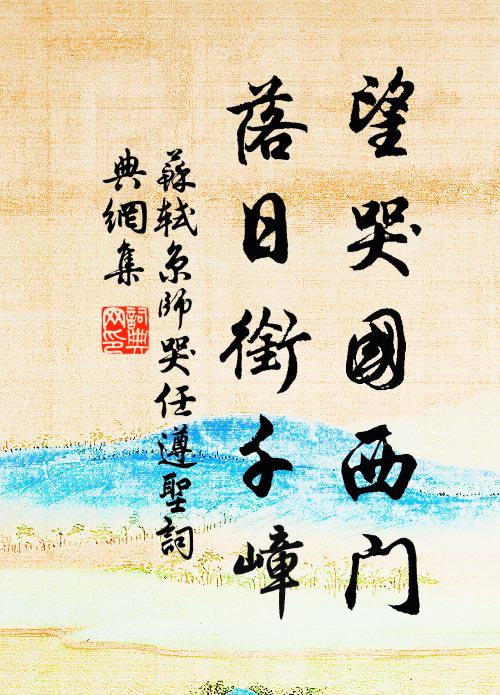 望哭國西門
落日銜千嶂
蘇軾京師哭任遵聖詞
典網集
詞典
网印